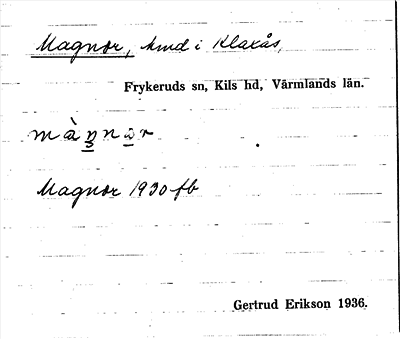 Magnor, hmd i Klaxås,
Frykeruds sn, Kils hd, Värmlands län.
Magnor 1930 fb
Gertrud Erikson 1936.